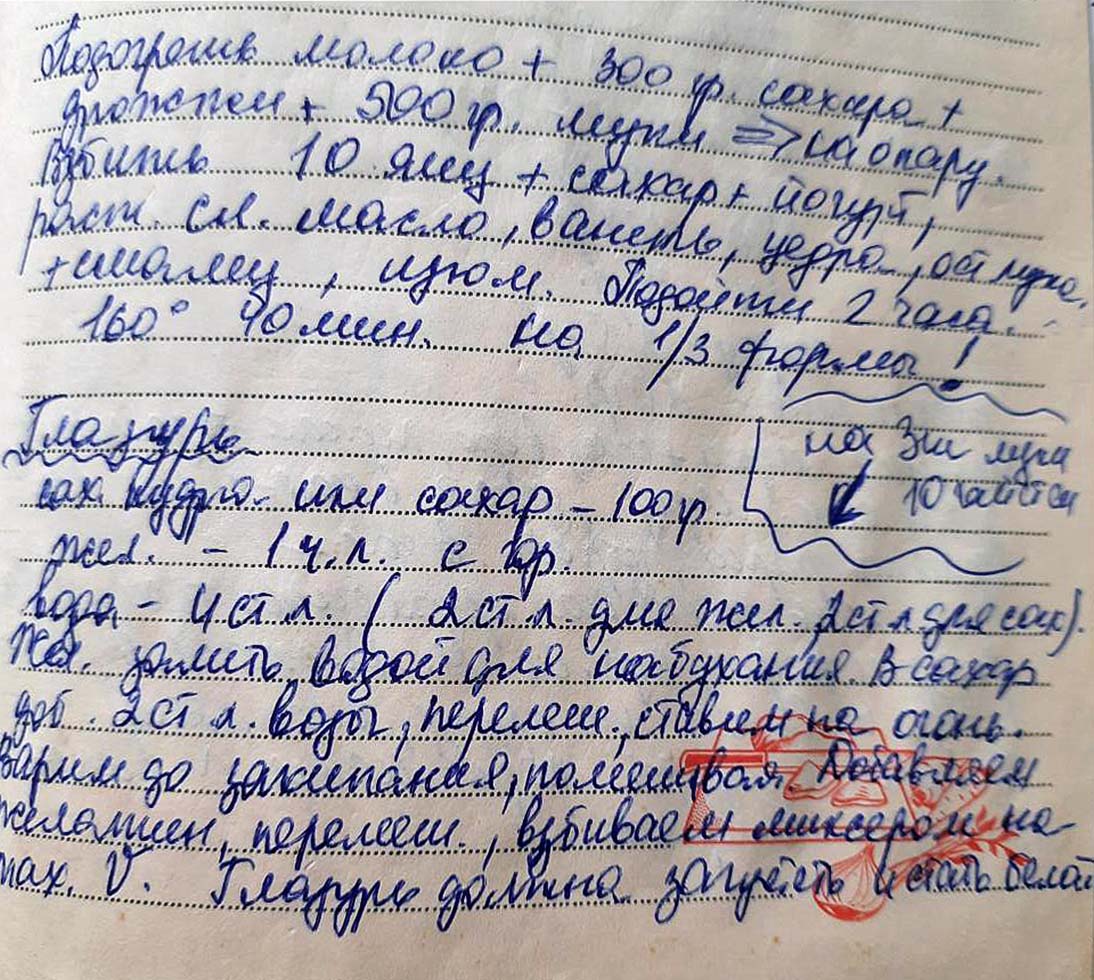 Подогреть молоко + 300 гр. сахара +
дрожжи + 500 гр. муки ⇒ на опару.
Взбить 10 яиц + сахар + йогурт,
раст. сл. масло, ваниль, цедра, ост мука,
+ смалец, изюм. Подойти 2 часа.
160° 40 мин. на 1/3 формы!
Глазурь
сах. пудра или сахар - 100 гр.
жел. - 1 ч.л. с гор.
вода - 4 ст л. (2 ст л. для жел. 2 ст л для сах).
Жел. залить водой для набухания. В сахар
доб. 2 ст л. воды, перемеш., ставим на огонь.
Варим до закипания, помешивая. Добавляем
желатин, перемеш., взбиваем миксером на
max. V. Глазурь должна загустеть и стать белой
на 3 муки
↙ 10